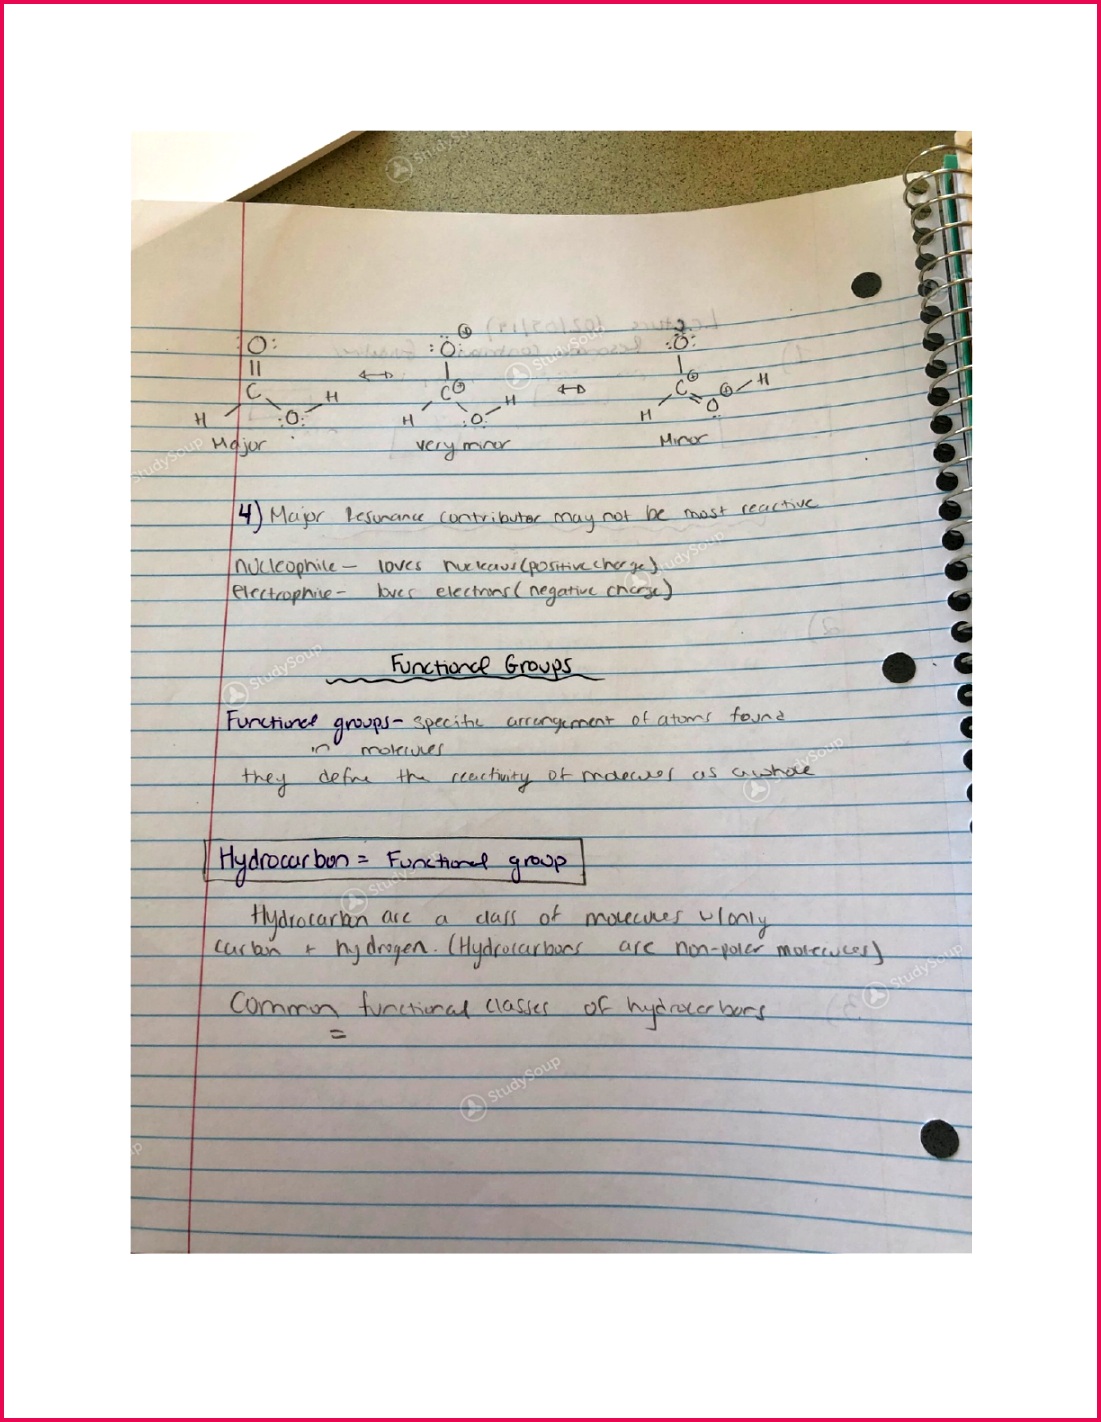 :O:
||
C
H
:O:
H
Major
↔
:O:
⊕
|
C⊕
H
:O:
H
very minor
↔
:O:
|
C⊕
H
O
⊕
H
Minor
4) Major Resonance contributor may not be most reactive
nucleophile - loves nucleaus (positive charge)
electrophile - loves electrons (negative charge)
Functional Groups
Functional groups - specific arrangement of atoms found
in molecules
they define the reactivity of molecules as a whole
Hydrocarbon = Functional group
Hydrocarbon are a class of molecules w/only
carbon + hydrogen. (Hydrocarbons are non-polar molecules)
Common functional classes of hydrocarbons
=
StudySoup
StudySoup
StudySoup
StudySoup
StudySoup
StudySoup
StudySoup
StudySoup
StudySoup